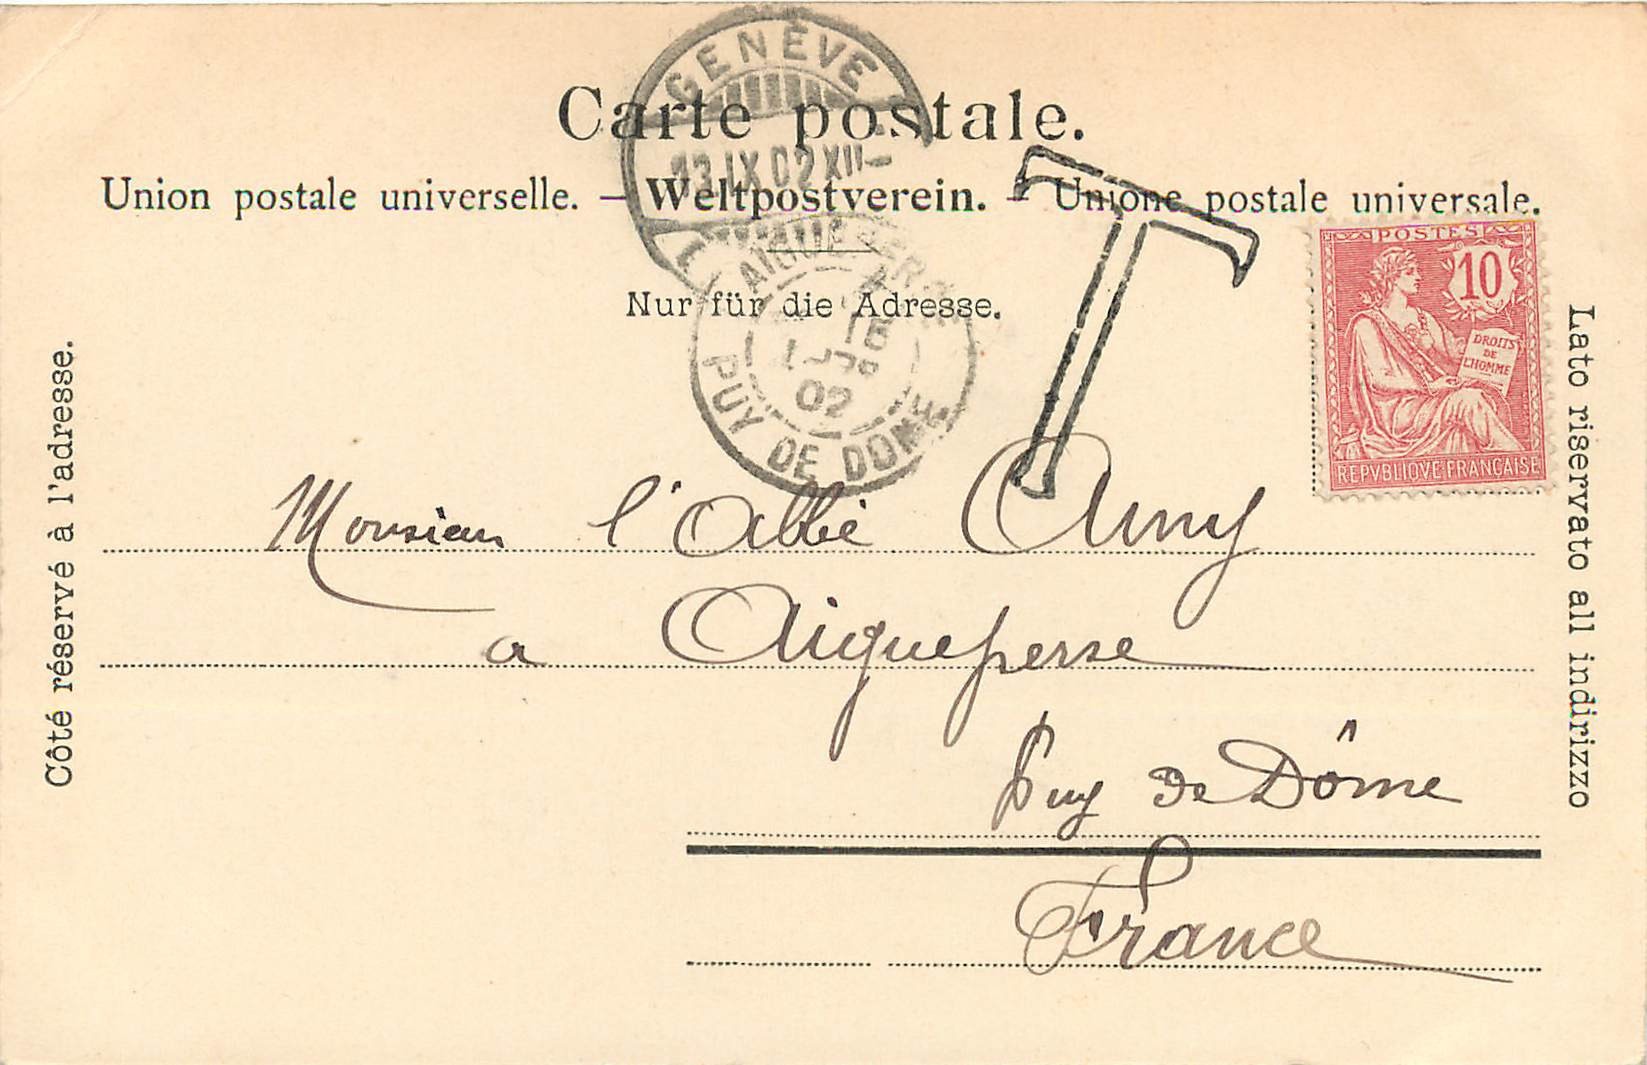 GENÈVE
Carte postale.
13.IX.02.XII–
Union postale universelle. – Weltpostverein. – Unione postale universale.
T
POSTES
10
DROITS
DE
L'HOMME
REPVBLIQVE FRANÇAISE
AIGUEPERSE
Nur für die Adresse.
15
02
PUY DE DOME
Côté réservé à l'adresse.
Lato riservato all indirizzo
Monsieur l'Abbé
à Aigueperse
Puy de Dôme
France